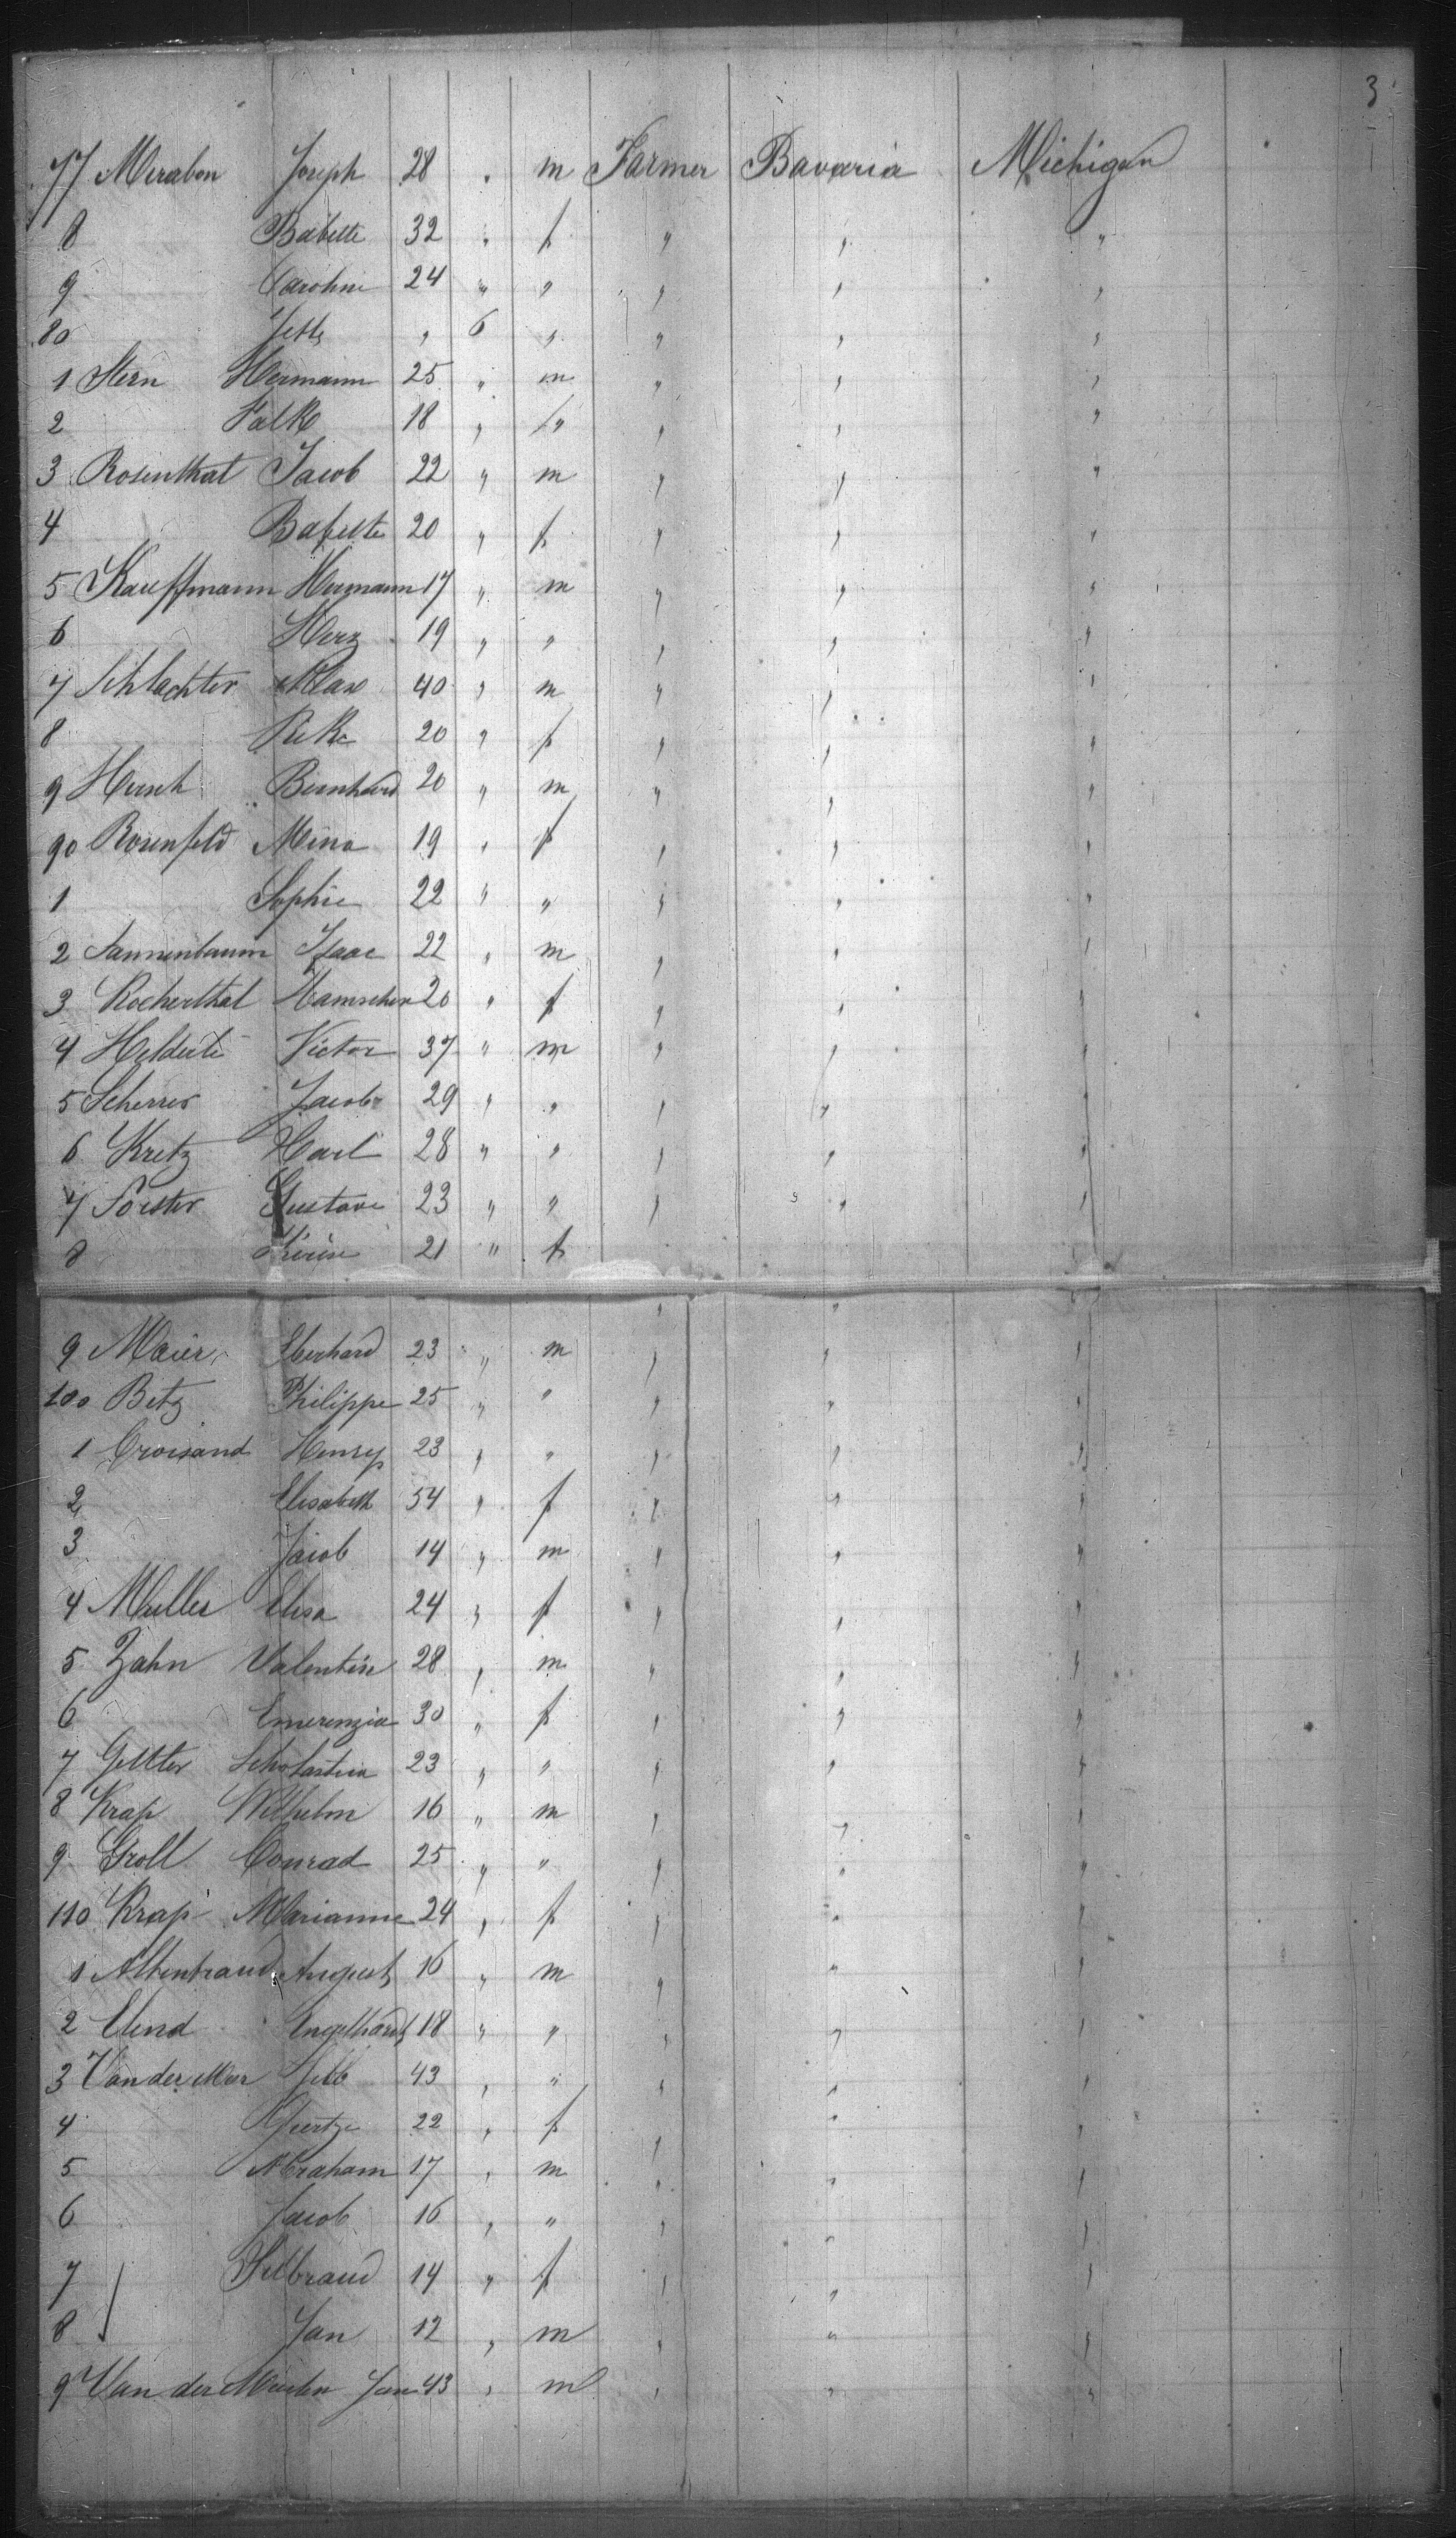 3
77 Merabon Joseph 28 " m Farmer Bavaria Michigan
8 Babette 32 " f " " "
9 Caroline 24 " " " " "
80 Jette " 6 " " " "
1 Stern Hermann 25 " m " " "
2 Falk 18 " " " " "
3 Rosenthal Jacob 22 " m " " "
4 Babette 20 " f " " "
5 Kauffmann Hermann 17 " m " " "
6 Herz 19 " " " " "
7 Schlachter Max 40 " m " " "
8 Rike 20 " f " " "
9 Hirsch Bernhard 20 " m " " "
90 Rosenfeld Mina 19 " f " " "
1 Sophie 22 " " " " "
2 Tannenbaum Isaac 22 " m " " "
3 Rocherthal 20 " f " " "
4 Victor 37 " m " " "
5 Scherrer Jacob 29 " " " " "
6 Kretz Carl 28 " " " " "
7 Forster Gustave 23 " " " " "
8 21 " f " " "
9 Maier Eberhard 23 " m " " "
100 Betz Philippe 25 " " " " "
1 Croisand Henry 23 " " " " "
2 Elisabeth 54 " f " " "
3 Jacob 14 " m " " "
4 Muller Elisa 24 " f " " "
5 Zahn Valentine 28 " m " " "
6 Emerenzia 30 " f " " "
7 Scholastica 23 " " " " "
8 Krap Wilhelm 16 " m " " "
9 Groll Conrad 25 " " " " "
110 Krap Marianne 24 " f " " "
1 Altenbrand August 16 " m " " "
2 Elend Engelhardt 18 " " " " "
3 Van der Meer 43 " " " " "
4 22 " f " " "
5 Abraham 17 " m " " "
6 Jacob 16 " " " " "
7 14 " f " " "
8 Jan 12 " m " " "
9 Van der Jan 43 " m " " "